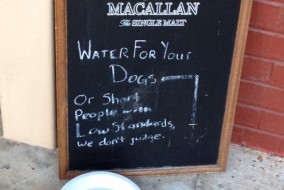 MACALLAN
The SINGLE MALT
WATER FOR YOUR
DOGS
Or Short
People with
Low Standards,
we don't judge.